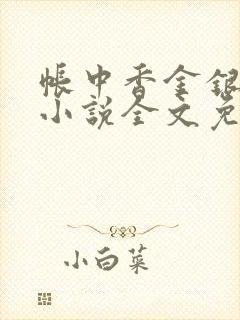 帐中香金银
小说全文免
小白菜